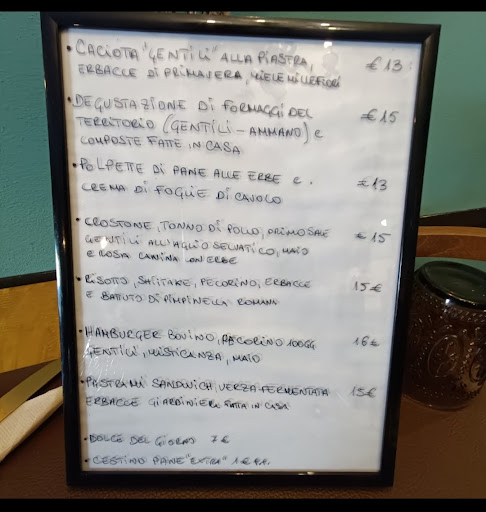 • CACIOTA "GENTILI" ALLA PIASTRA, € 13
ERBACCE DI PRIMAVERA, MIELE MILLEFIORI
• DEGUSTAZIONE DI FORMAGGI DEL € 15
TERRITORIO (GENTILI - AMMANO) E
COMPOSTE FATTE IN CASA
• POLPETTE DI PANE ALLE ERBE E € 13
CREMA DI FOGLIE DI CAVOLO
• CROSTONE, TONNO DI POLLO, PRIMO SALE € 15
GENTILI ALL'AGLIO SELVATICO, MAIO
E ROSA CANINA CON ERBE
• RISOTTO, SHIITAKE, PECORINO, ERBACCE 15 €
E BATTUTO DI PIMPINELLA ROMANA
• HAMBURGER BOVINO, PECORINO 100GG 16 €
GENTILI, MISTICANZA, MAIO
• PASTRAMI SANDWICH, VERZA FERMENTATA 15 €
ERBACCE GIARDINIERA FATTA IN CASA
• DOLCE DEL GIORNO 7 €
• CESTINO PANE "EXTRA" 1 € P.P.